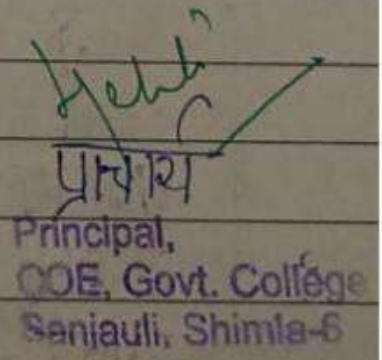 प्राचार्य
Principal,
COE, Govt. College
Sanjauli, Shimla-6